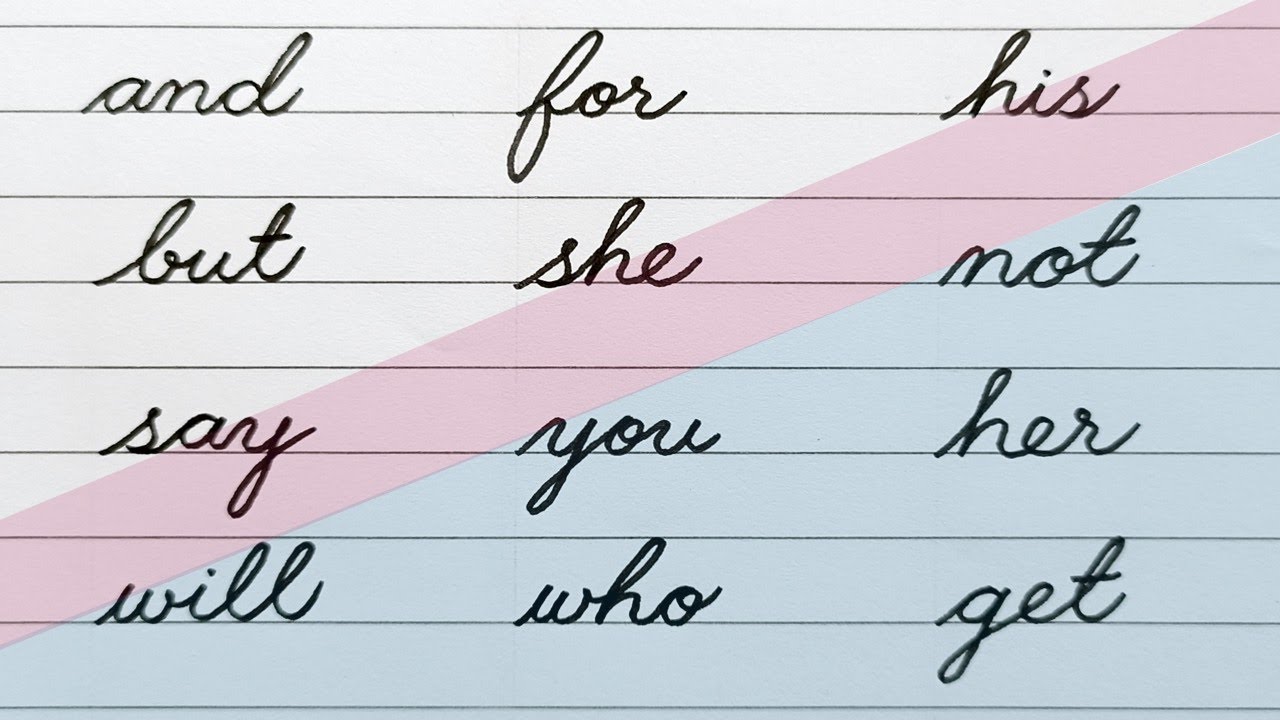 and for his
but she not
say you her
will who get